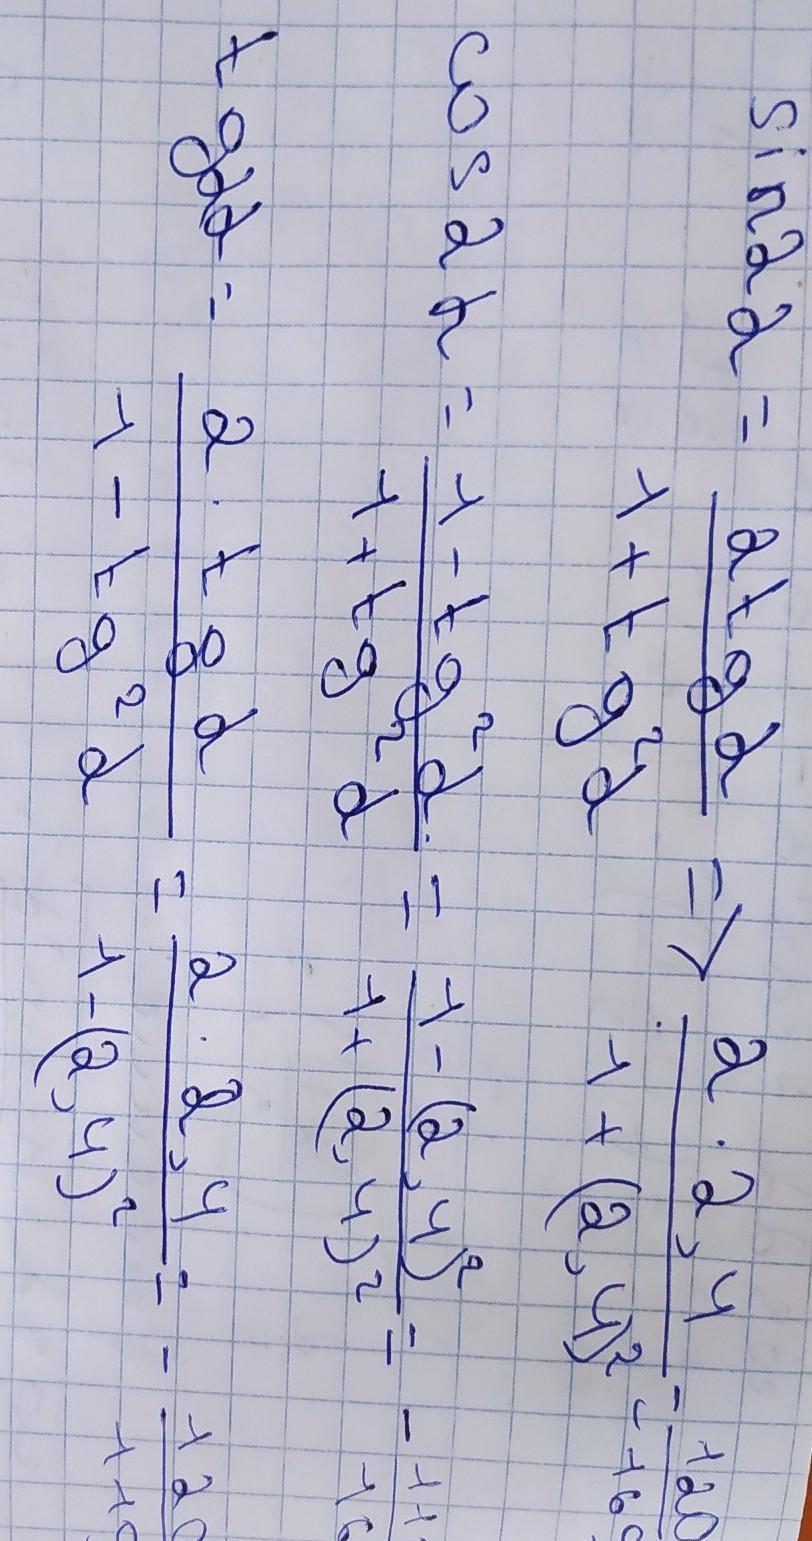 sin2α = 2tgα / 1 + tg²α => 2 · 2,4 / 1 + (2,4)² = 120 / 169
cos2α = 1 - tg²α / 1 + tg²α = 1 - (2,4)² / 1 + (2,4)² = - 11 / 16
tg2α = 2 · tgα / 1 - tg²α = 2 · 2,4 / 1 - (2,4)² = - 120 / 119